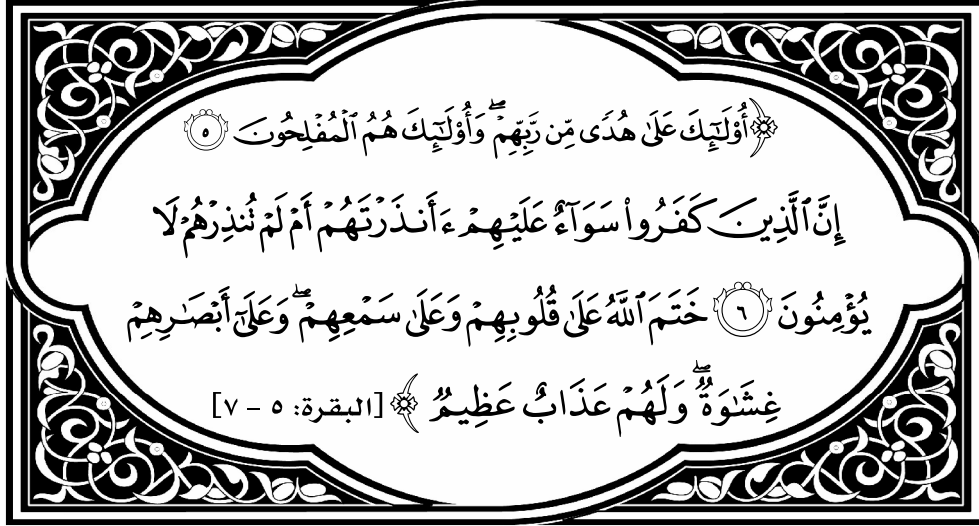 ﴿أُوْلَٰٓئِكَ عَلَىٰ هُدٗى مِّن رَّبِّهِمۡۖ وَأُوْلَٰٓئِكَ هُمُ ٱلۡمُفۡلِحُونَ ٥
إِنَّ ٱلَّذِينَ كَفَرُواْ سَوَآءٌ عَلَيۡهِمۡ ءَأَنذَرۡتَهُمۡ أَمۡ لَمۡ تُنذِرۡهُمۡ لَا
يُؤۡمِنُونَ ٦ خَتَمَ ٱللَّهُ عَلَىٰ قُلُوبِهِمۡ وَعَلَىٰ سَمۡعِهِمۡۖ وَعَلَىٰٓ أَبۡصَٰرِهِمۡ
غِشَٰوَةٞۖ وَلَهُمۡ عَذَابٌ عَظِيمٞ﴾ [البقرة: ٥ - ٧]